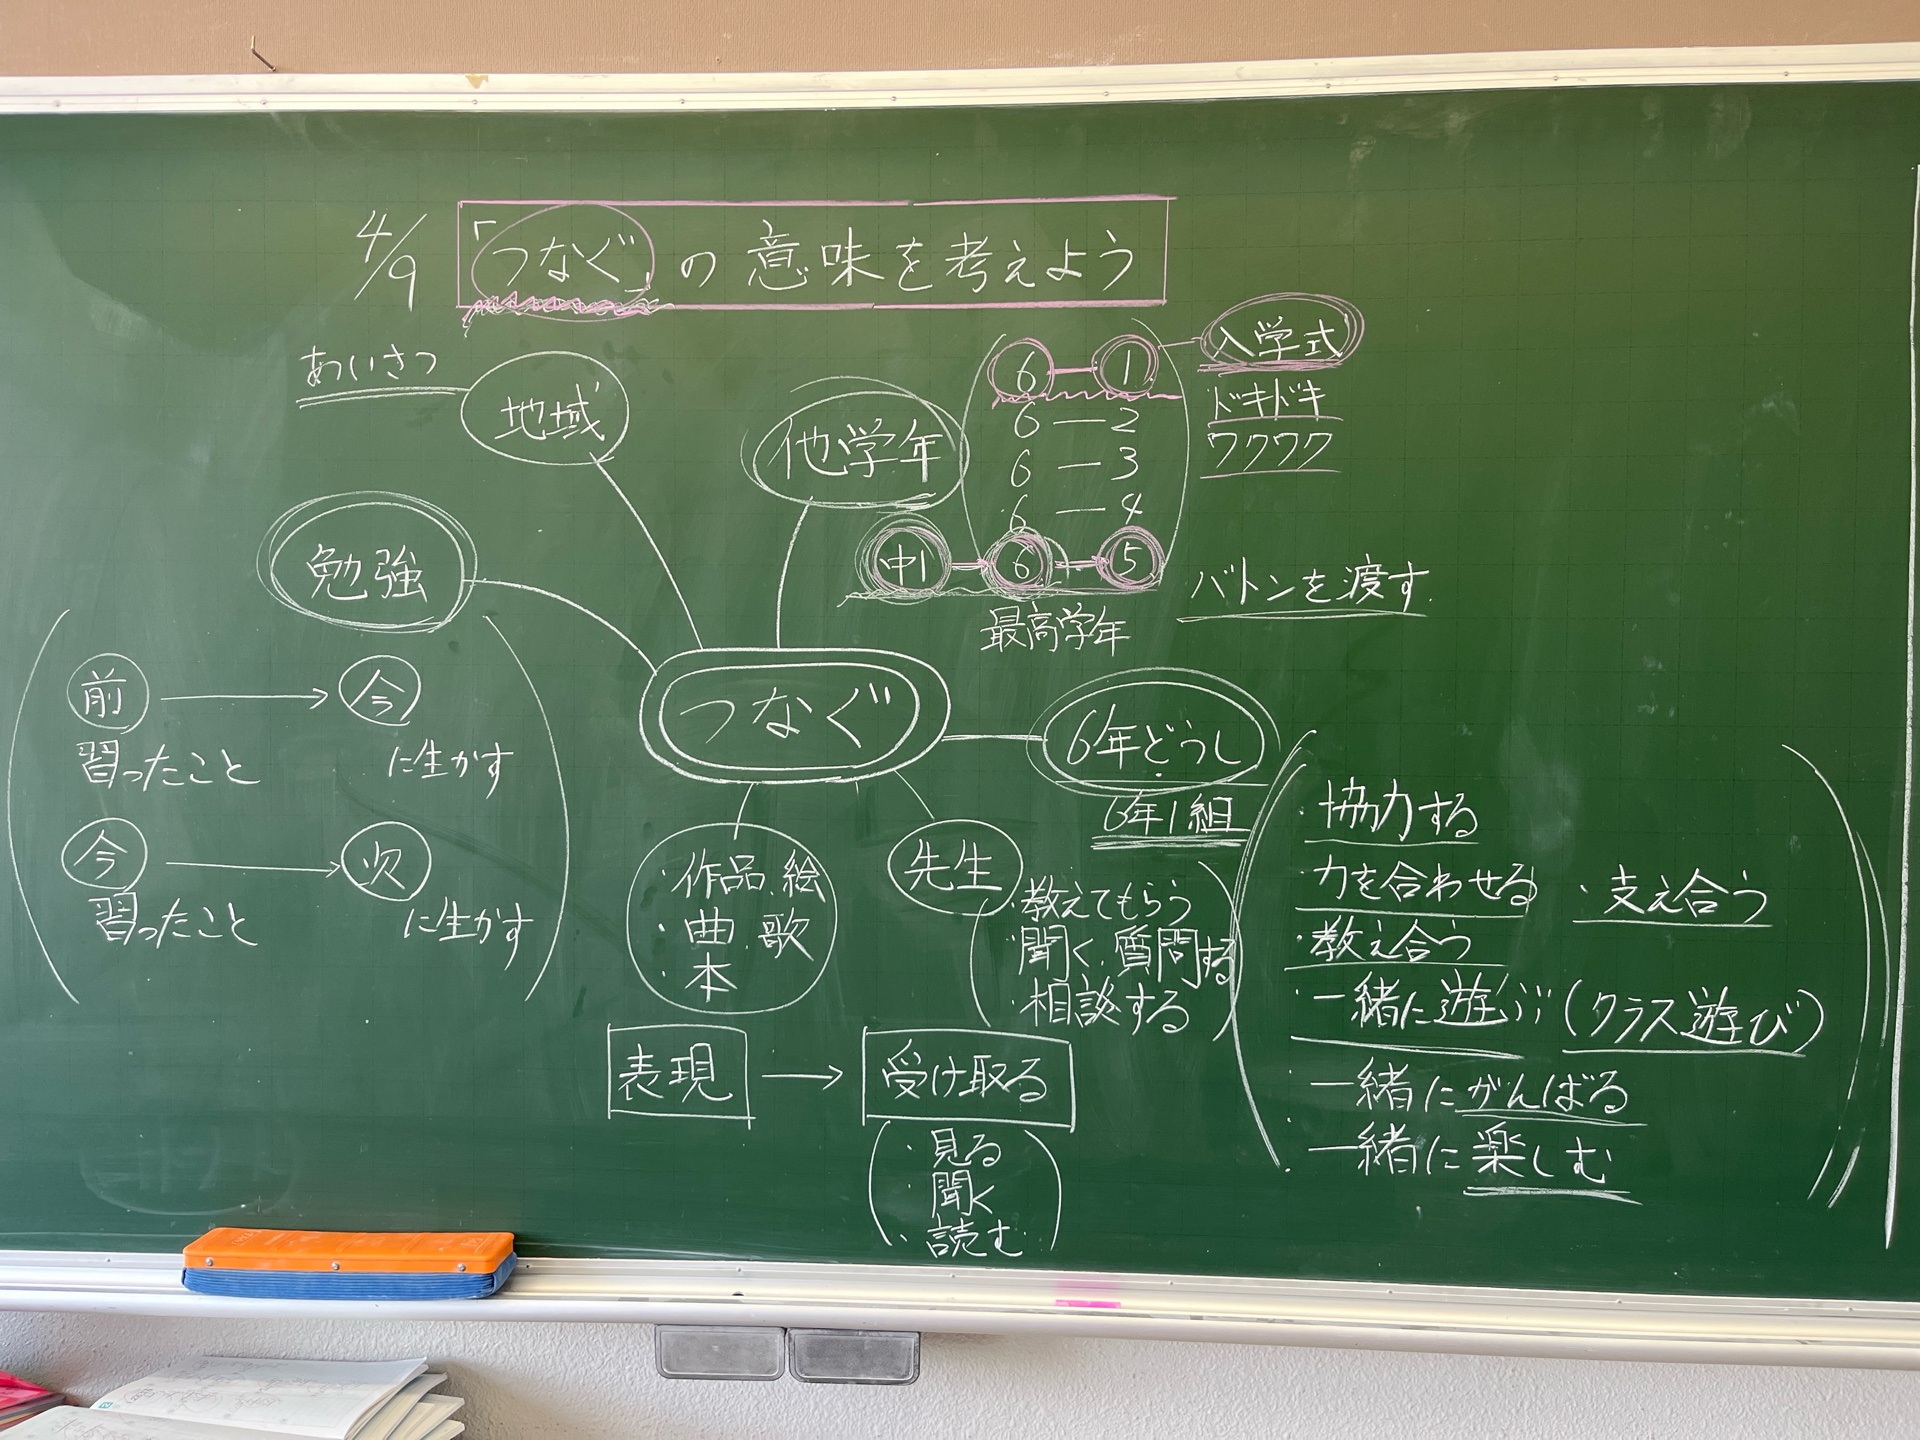 4/9 「つなぐ」の意味を考えよう
あいさつ
地域
他学年
6―1
入学式
ドキドキ
ワクワク
6―2
6―3
6―4
中1→6→5
最高学年
バトンを渡す
勉強
前→今
習ったこと に生かす
今→次
習ったこと に生かす
つなぐ
6年どうし
6年1組
・協力する
力を合わせる
・支え合う
・教え合う
・一緒に遊ぶ(クラス遊び)
一緒にがんばる
・一緒に楽しむ
先生
・教えてもらう
・聞く、質問する
・相談する
・作品、絵
・曲、歌
・本
表現→受け取る
・見る
・聞く
・読む